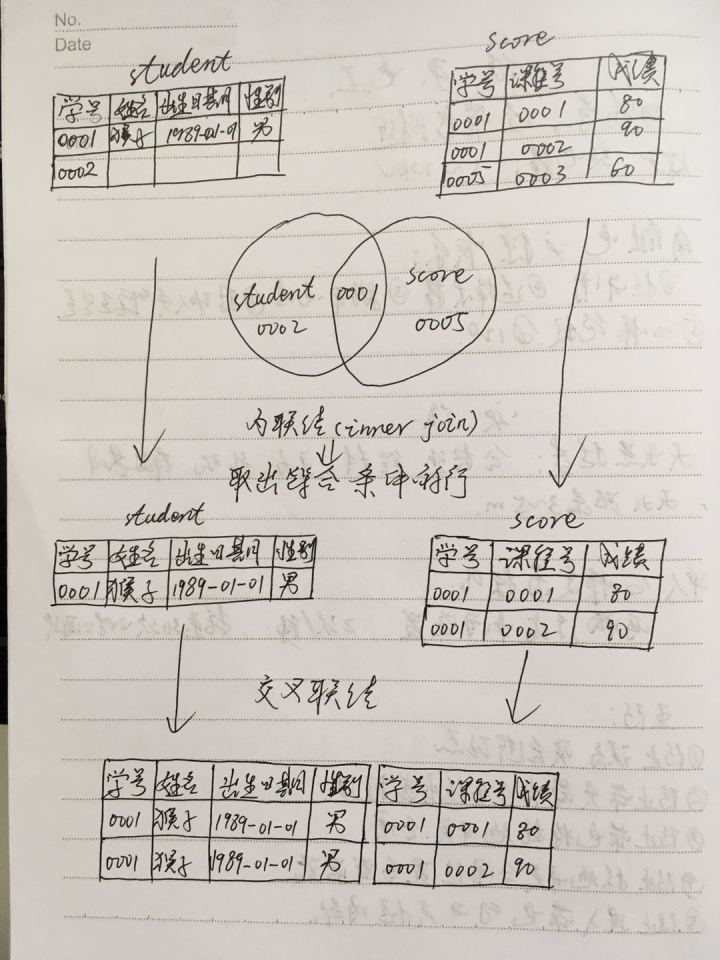 No.
Date
student
学号 姓名 出生日期 性别
0001 猴子 1989-01-01 男
0002
score
学号 课程号 成绩
0001 0001 80
0001 0002 90
0005 0003 60
student 0001 score
0002 0005
内联结(inner join)
取出符合条件的行
student
学号 姓名 出生日期 性别
0001 猴子 1989-01-01 男
score
学号 课程号 成绩
0001 0001 80
0001 0002 90
交叉联结
学号 姓名 出生日期 性别 学号 课程号 成绩
0001 猴子 1989-01-01 男 0001 0001 80
0001 猴子 1989-01-01 男 0001 0002 90